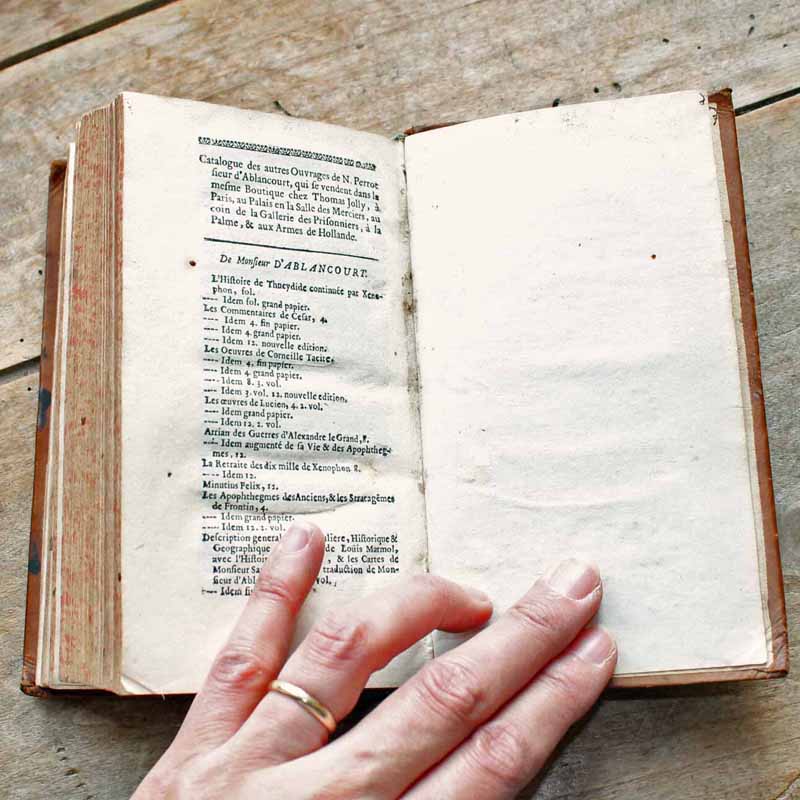 Catalogue des autres Ouvrages de N. Perrot
sieur d'Ablancourt, qui se vendent dans la
mesme Boutique chez Thomas Jolly, à
Paris, au Palais en la Salle des Merciers, au
coin de la Gallerie des Prisonniers, à la
Palme, & aux Armes de Hollande.
De Monsieur D'ABLANCOURT.
L'Histoire de Thucydide continuée par Xeno-
phon, fol.
---- Idem fol. grand papier.
Les Commentaires de Cesar, 4.
---- Idem 4. fin papier.
---- Idem 4. grand papier.
---- Idem 12. nouvelle edition.
Les Oeuvres de Corneille Tacite,
---- Idem 4. fin papier.
---- Idem 4. grand papier.
---- Idem 8. 3. vol.
---- Idem 3. vol. 12. nouvelle edition,
Les œuvres de Lucien, 4. 2. vol.
---- Idem grand papier.
---- Idem 12. 2. vol.
Arrian des Guerres d'Alexandre le Grand, 8.
---- Idem augmenté de sa Vie & des Apophtheg-
mes, 12.
La Retraite des dix mille de Xenophon 8.
---- Idem 12.
Minutius Felix, 12.
Les Apophthegmes des Anciens, & les Stratagêmes
de Frontin, 4.
---- Idem grand papier.
---- Idem 12. 2. vol.
Description general liere, Historique &
Geographique de Louis Marmol,
avec l'Histoi , & les Cartes de
Monsieur Sa traduction de Mon-
sieur d'Abl vol.
---- Idem fi